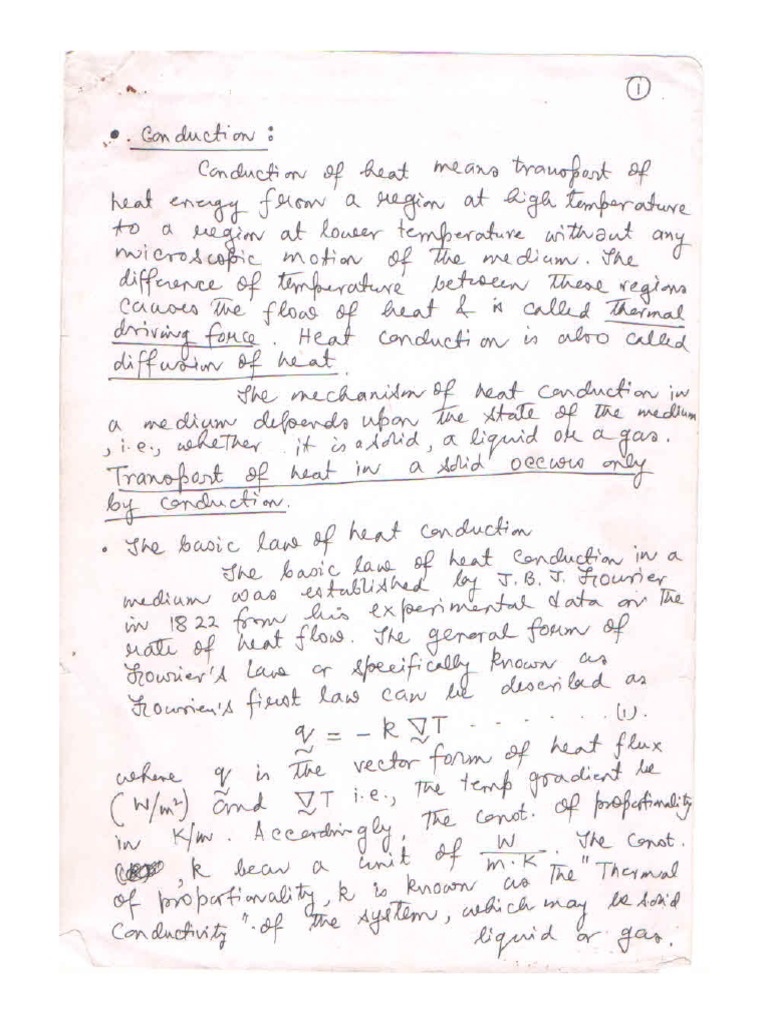 ①
• Conduction :
Conduction of heat means transport of
heat energy from a region at high temperature
to a region at lower temperature without any
microscopic motion of the medium. The
difference of temperature between these regions
causes the flow of heat & is called thermal
driving force. Heat conduction is also called
diffusion of heat.
The mechanism of heat conduction in
a medium depends upon the state of the medium
, i.e., whether it is a solid, a liquid or a gas.
Transport of heat in a solid occurs only
by conduction.
• The basic law of heat conduction
The basic law of heat conduction in a
medium was established by J.B.J. Fourier
in 1822 from his experimental data on the
rate of heat flow. The general form of
Fourier's Law or specifically known as
Fourier's first law can be described as
q̰ = - k ∇̰T - - - - - - - (1).
where q̰ is the vector form of heat flux
(W/m²) and ∇̰T i.e., the temp gradient be
in K/m. Accordingly, the const. of proportionality
, k bear a unit of W/m·K. The const.
of proportionality, k is known as the "Thermal
Conductivity" of the system, which may be solid
liquid or gas.